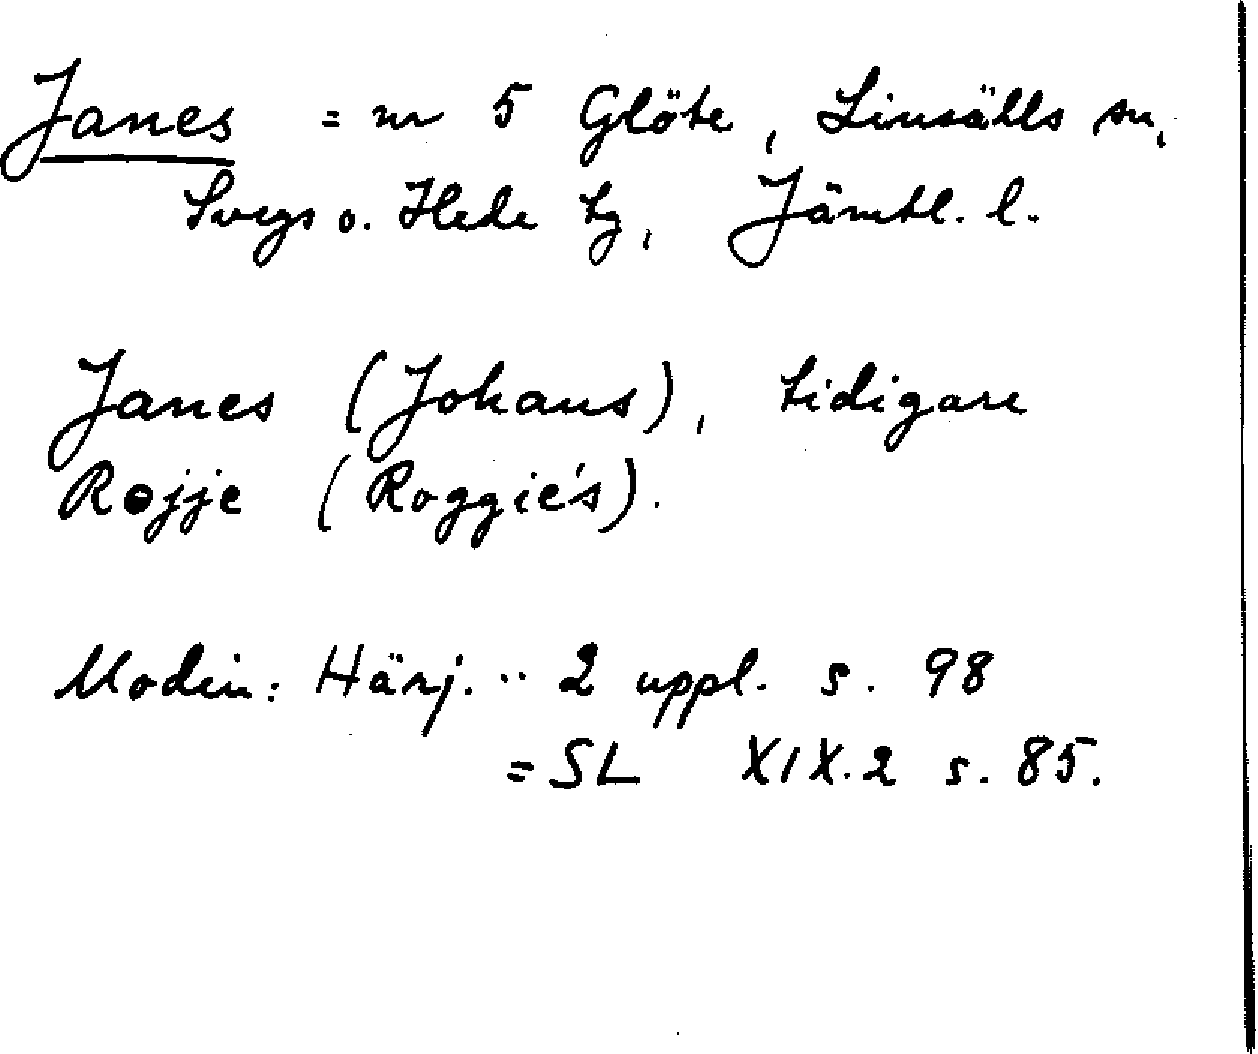 Janes = nr 5 Glöte, Linsälls sn,
Svegs o. Hede tg, Jämtl. l.
Janes (Johans), tidigare
Rojje (Roggiés).
Modin: Härj. .. 2 uppl. s. 98
= SL XIX.2 s. 85.